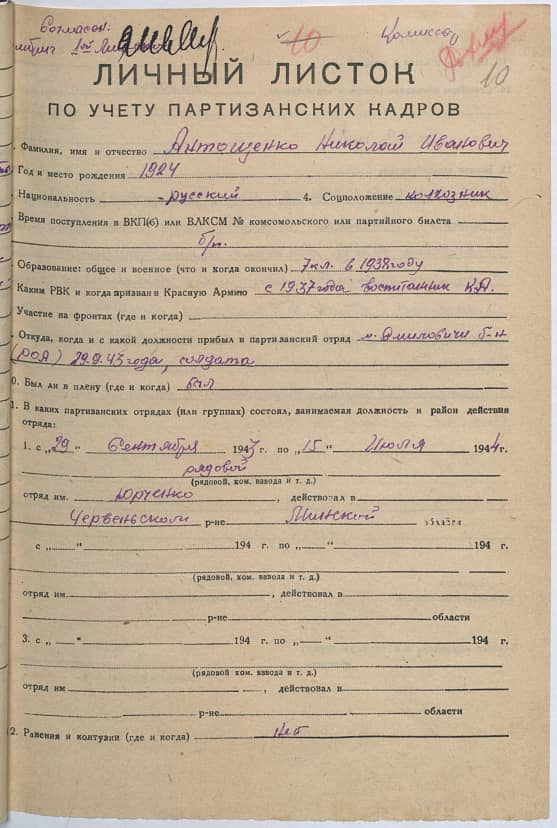 Согласен.
10 Комиссо
10
ЛИЧНЫЙ ЛИСТОК
ПО УЧЕТУ ПАРТИЗАНСКИХ КАДРОВ
Фамилия, имя и отчество Антощенко Николай Иванович
Год и место рождения 1924
Национальность русский 4. Соцположение колхозник
Время поступления в ВКП(б) или ВЛКСМ № комсомольского или партийного билета
б/п.
Образование: общее и военное (что и когда окончил) 7 кл. в 1938 году
Каким РВК и когда призван в Красную Армию с 1937 года воспитанник К.А.
Участие на фронтах (где и когда)
Откуда, когда и с какой должности прибыл в партизанский отряд м. Смиловичи б-н
(РОА) 29.9.43 года, солдата
0. Был ли в плену (где и когда) был
1. В каких партизанских отрядах (или группах) состоял, занимаемая должность и район действия
отряда:
1. с „29" Сентября 1943 г. по „15" Июля 1944 г.
рядовой
(рядовой, ком. взвода и т. д.)
отряд им. Юрченко, действовал в
Червеньском р-не Минской области
с „ " 194 г. по „ " 194 г.
(рядовой, ком. взвода и т. д.)
отряд им. , действовал в
р-не области
3. с „ " 194 г. по „ " 194 г.
(рядовой, ком. взвода и т. д.)
отряд им , действовал в
р-не области
2. Ранения и контузии (где и когда) Нет